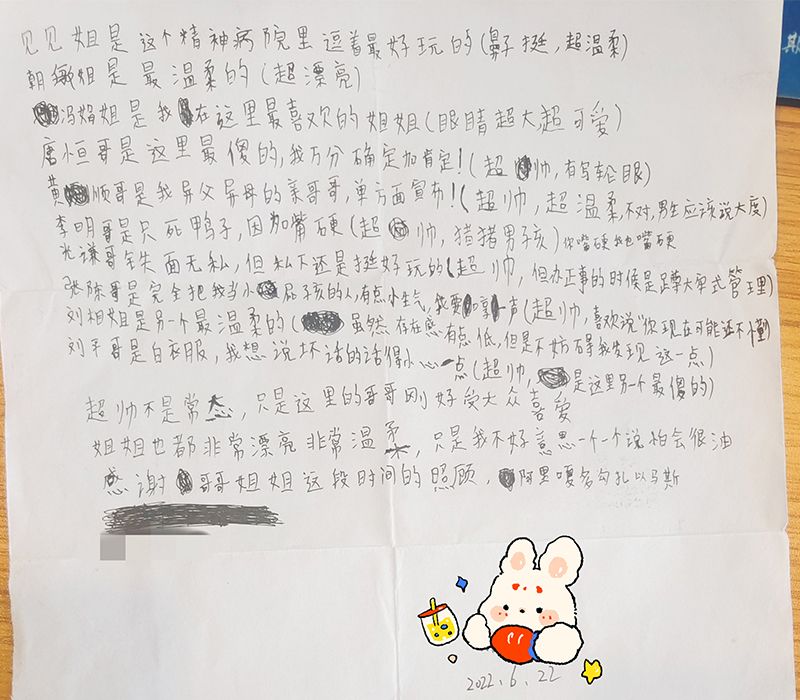 见见姐是这个精神病院里逗着最好玩的(鼻子挺,超温柔)
朝敏姐是最温柔的(超漂亮)
冯娟姐是我在这里最喜欢的姐姐(眼睛超大,超可爱)
唐恒哥是这里最傻的,我万分确定加肯定!(超帅,有写轮眼)
黄顺哥是我异父异母的亲哥哥,单方面宣布!(超帅,超温柔,不对,男生应该说大度)
李明哥是只死鸭子,因为嘴硬(超帅,猪猪男孩)你嘴硬我也嘴硬
光谦哥铁面无私,但私下还是挺好玩的(超帅,但办正事的时候是蹲大牢式管理)
张陈哥是完全把我当小屁孩的人,有点小生气,我要哼一声(超帅,喜欢说"你现在可能还不懂)
刘相姐是另一个最温柔的(虽然存在感有点低,但是不妨碍我发现这一点)
刘平哥是白衣服,我想说坏话的话得小心一点(超帅,是这里另一个最傻的)
超帅不是常态,只是这里的哥哥刚好受大众喜爱
姐姐也都非常漂亮非常温柔,只是我不好意思一个一个说怕会很油
感谢哥哥姐姐这段时间的照顾,阿里嘎多勾扎以马斯
2022.6.22